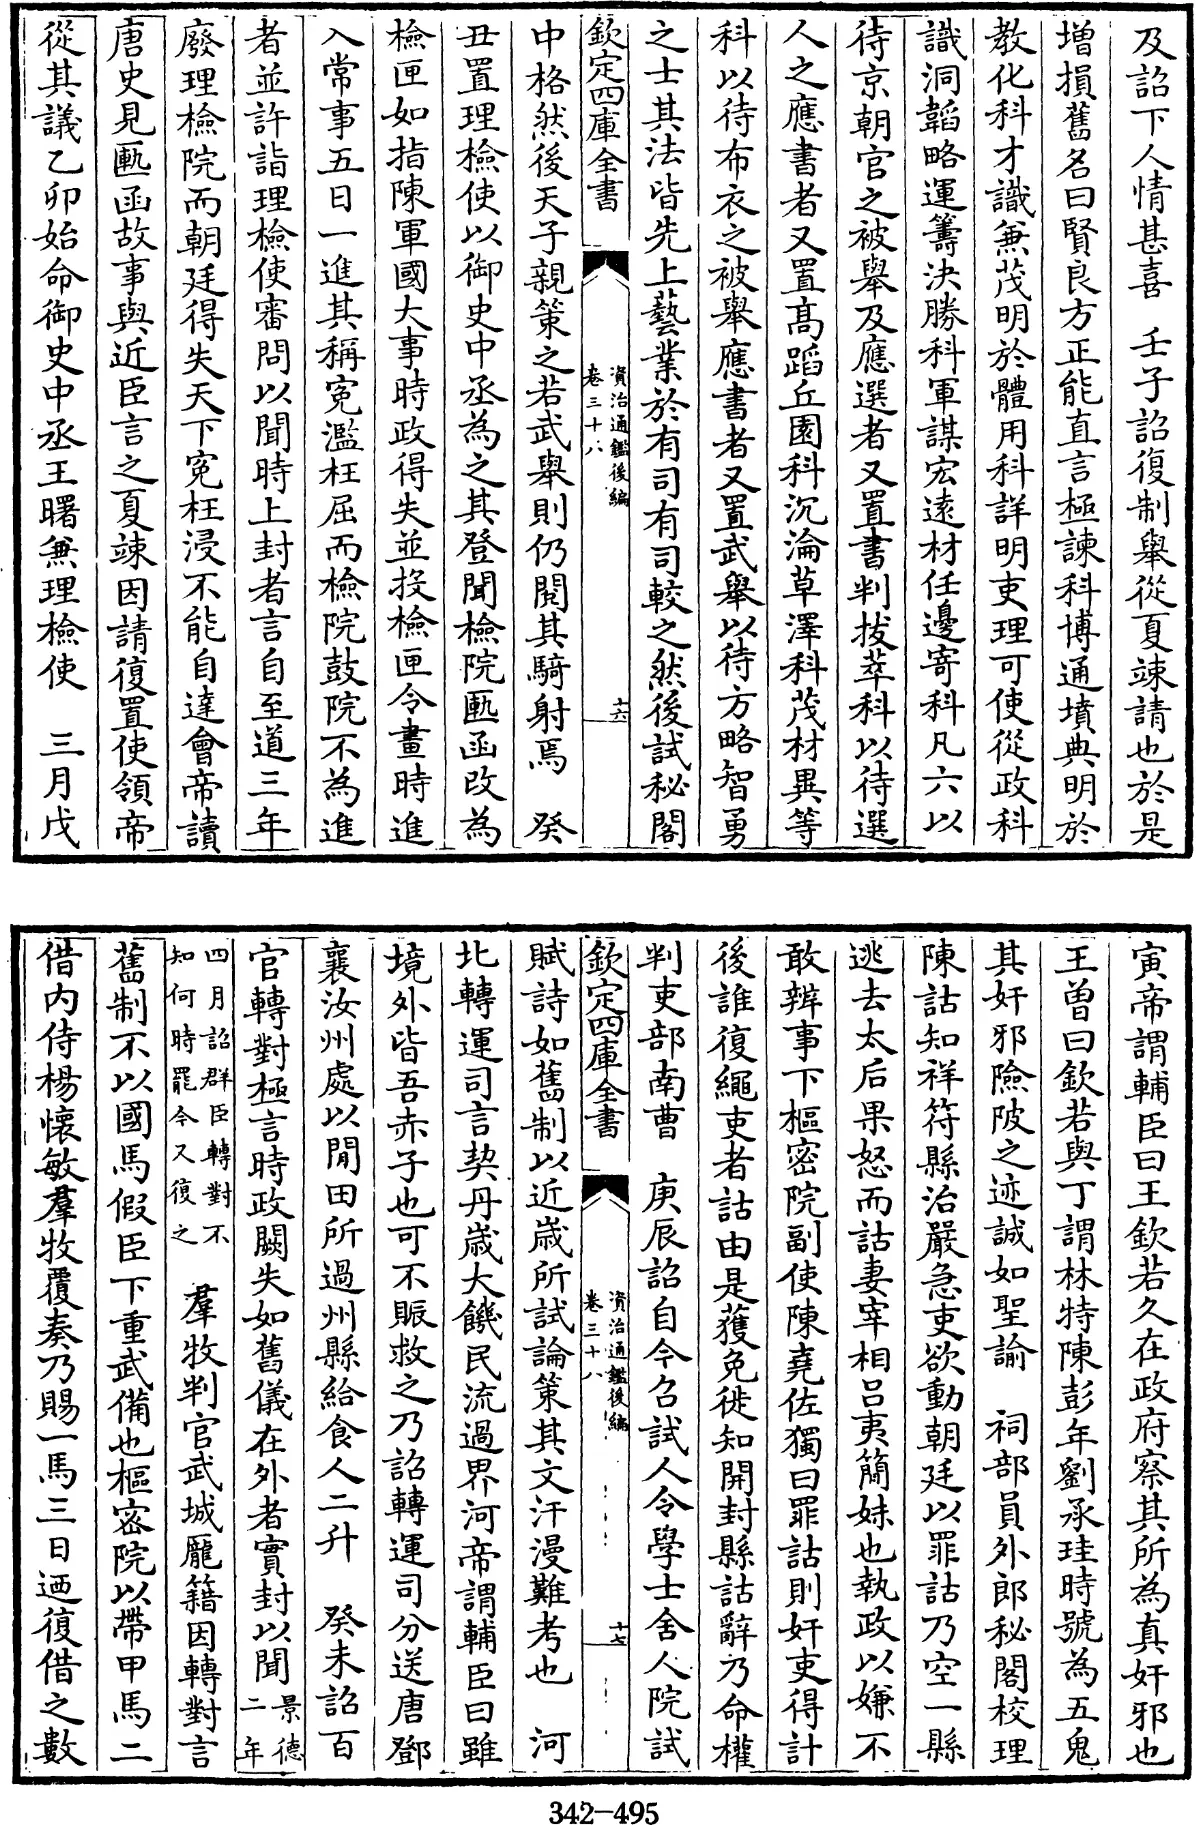 及詔下人情甚喜　壬子詔復制舉從夏竦請也於是
增損舊名曰賢良方正能直言極諫科博通墳典明於
教化科才識兼茂明於體用科詳明吏理可使從政科
識洞韜略運籌決勝科軍謀宏遠材任邊寄科凡六以
待京朝官之被舉及應選者又置書判拔萃科以待選
人之應書者又置髙蹈丘園科沉淪草澤科茂材異等
科以待布衣之被舉應書者又置武舉以待方略智勇
之士其法皆先上藝業於有司有司較之然後試秘閣
欽定四庫全書
資治通鑑後編
卷三十八
十六
中格然後天子親策之若武舉則仍閱其騎射焉　癸
丑置理檢使以御史中丞為之其登聞檢院匭函改為
檢匣如指陳軍國大事時政得失並投檢匣令畫時進
入常事五日一進其稱寃濫枉屈而檢院鼓院不為進
者並許詣理檢使審問以聞時上封者言自至道三年
廢理檢院而朝廷得失天下寃枉浸不能自達會帝讀
唐史見匭函故事與近臣言之夏竦因請復置使領帝
從其議乙卯始命御史中丞王曙兼理檢使　三月戊
寅帝謂輔臣曰王欽若久在政府察其所為真奸邪也
王曾曰欽若與丁謂林特陳彭年劉承珪時號為五鬼
其奸邪險陂之迹誠如聖諭　祠部員外郎秘閣校理
陳詁知祥符縣治嚴急吏欲動朝廷以罪詁乃空一縣
逃去太后果怒而詁妻宰相吕夷簡妹也執政以嫌不
敢辨事下樞密院副使陳堯佐獨曰罪詁則奸吏得計
後誰復繩吏者詁由是獲免徙知開封縣詁辭乃命權
判吏部南曹　庚辰詔自今召試人令學士舍人院試
欽定四庫全書
資治通鑑後編
卷三十八
十七
賦詩如舊制以近歲所試論策其文汗漫難考也　河
北轉運司言契丹歲大饑民流過界河帝謂輔臣曰雖
境外皆吾赤子也可不賑救之乃詔轉運司分送唐鄧
襄汝州處以閒田所過州縣給食人二升　癸未詔百
官轉對極言時政闕失如舊儀在外者實封以聞景德
二年
四月詔群臣轉對不
知何時罷今又復之　羣牧判官武城龎籍因轉對言
舊制不以國馬假臣下重武備也樞密院以帶甲馬二
借内侍楊懷敏羣牧覆奏乃賜一馬三日迺復借之數
342-495